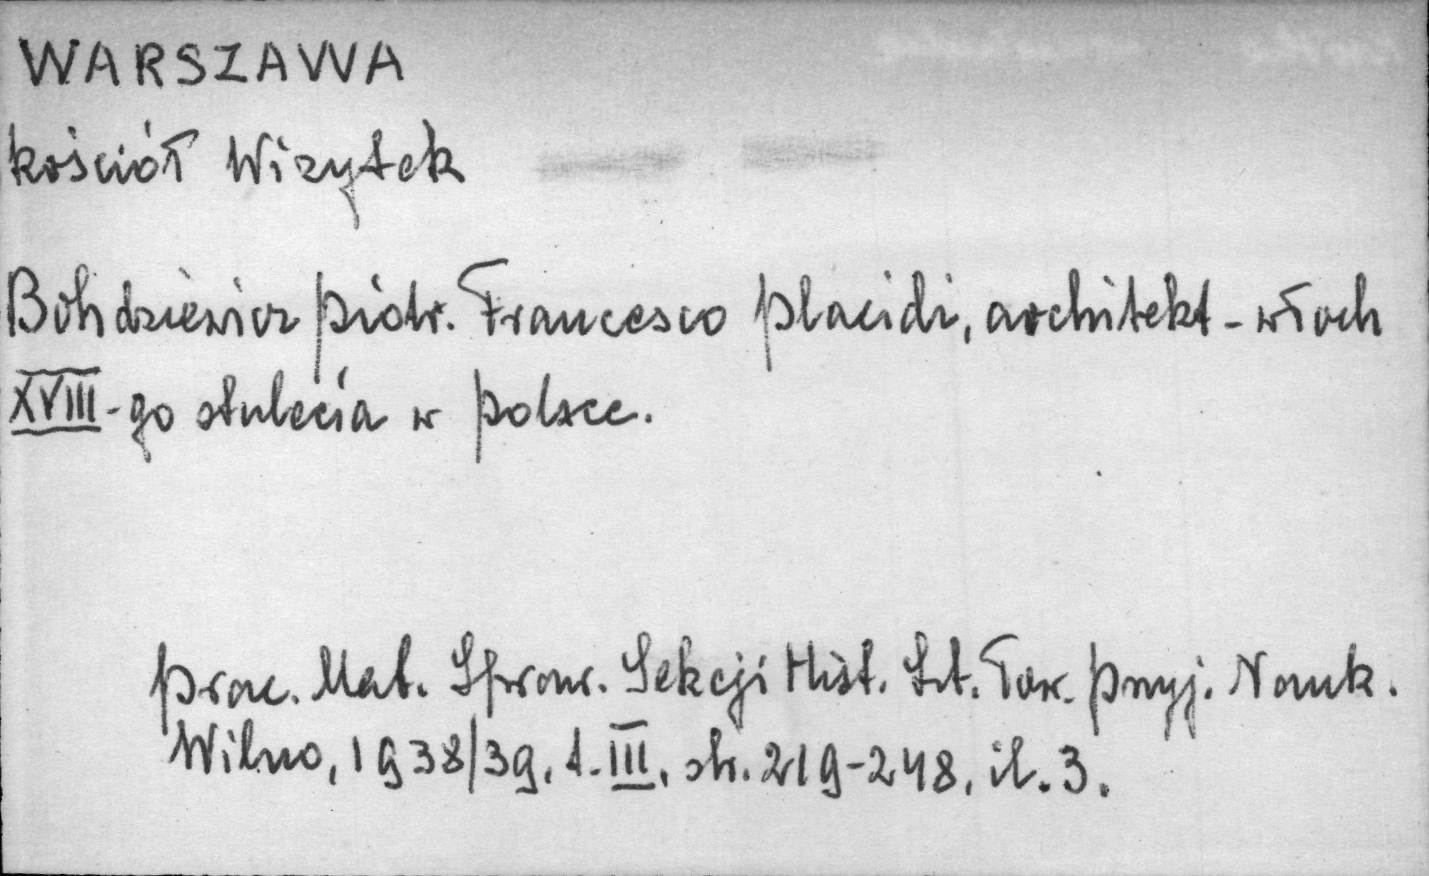 WARSZAWA
kościół Wizytek
Bohdziewicz Piotr. Francesco Placidi, architekt - włoch
XVIII-go stulecia w Polsce.
Prac. Mat. Spraw. Sekcji Hist. Szt. Tow. Przyj. Nauk.
Wilno, 1938/39, t. III, str. 219-248, il. 3.